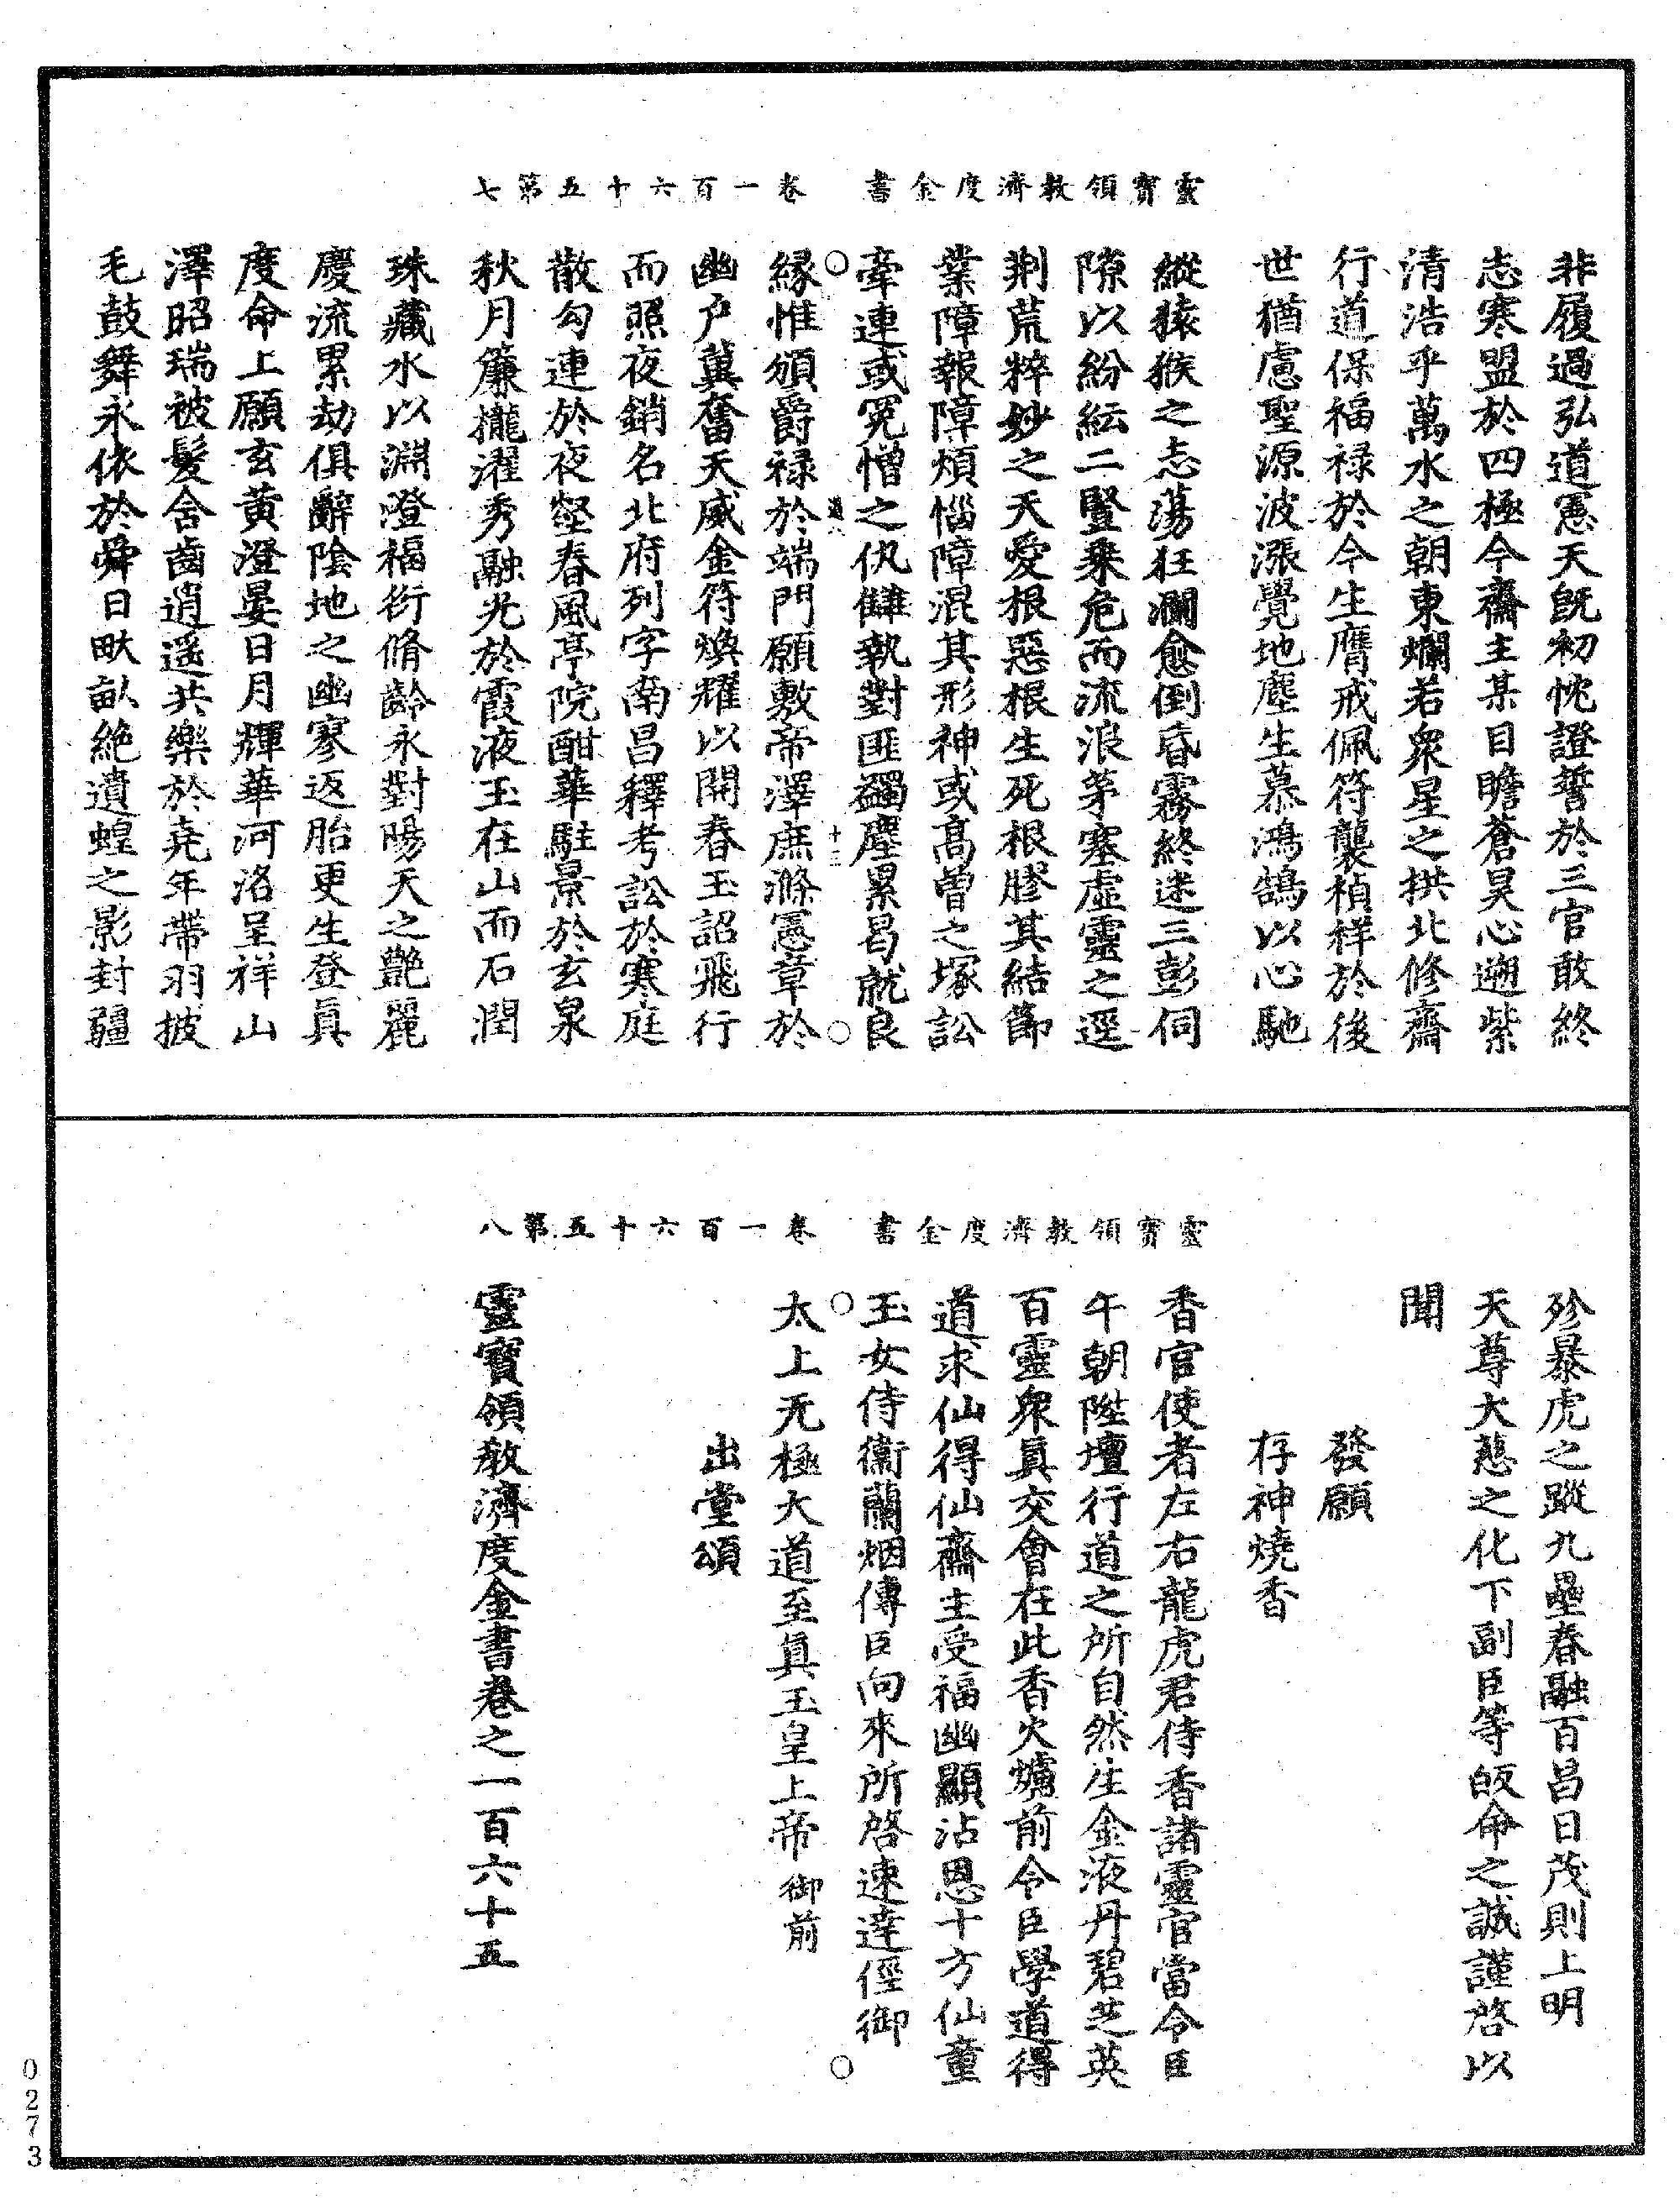 靈寶領教濟度金書　卷一百六十五第七
非履過弘道憲天旣初忱證誓於三官敢終
志寒盟於四極今齋主某目瞻蒼昊心遡紫
清浩乎萬水之朝東爛若衆星之拱北修齋
行道保福祿於今生膺戒佩符襲楨祥於後
世猶慮聖源波漲覺地塵生慕鴻鵠以心馳
縱猿猴之志蕩狂瀾愈倒昏霧終迷三彭伺
隙以紛紜二豎乗危而流浪茅塞虛靈之逕
荆荒粹妙之天愛根惡根生死根膠其結節
業障報障煩惱障混其形神或高曾之塚訟
牽連或冤憎之仇讎執對匪蠲塵累曷就良
縁惟頒爵禄於端門願敷帝澤庶滌憲章於
幽户冀奮天威金符煥耀以開春玉詔飛行
而照夜銷名北府列字南昌釋考訟於寒庭
散勾連於夜壑春風亭院酣華駐景於玄泉
秋月簾櫳濯秀融光於霞液玉在山而石潤
珠藏水以淵澄福衍脩齡永對陽天之艷麗
慶流累劫俱辭陰地之幽寥返胎更生登眞
度命上願玄黄澄晏日月輝華河洛呈祥山
澤昭瑞被髮含齒逍遥共樂於尭年帶羽披
毛鼓舞永依於舜日畎畝絶遺蝗之影封疆
道八
十三
靈寶領教濟度金書　卷一百六十五第八
殄暴虎之蹤九壘春融百昌日茂則上明
天尊大慈之化下副臣等皈命之誠謹啓以
聞
發願
存神燒香
香官使者左右龍虎君侍香諸靈官當令臣
午朝陞壇行道之所自然生金液丹碧芝英
百靈衆眞交會在此香火爐前令臣學道得
道求仙得仙齋主受福幽顯沾恩十方仙童
玉女侍衞蘭烟傳臣向來所啓速達徑御
太上无極大道至眞玉皇上帝御前
出堂頌
靈寶領敎濟度金書卷之一百六十五
0273